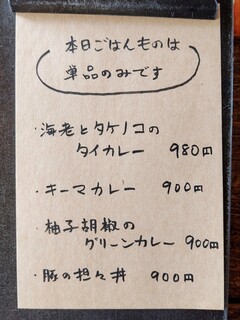 本日ごはんものは
単品のみです
・海老とタケノコの
タイカレー 980円
・キーマカレー 900円
・柚子胡椒の
グリーンカレー 900円
・豚の担々丼 900円